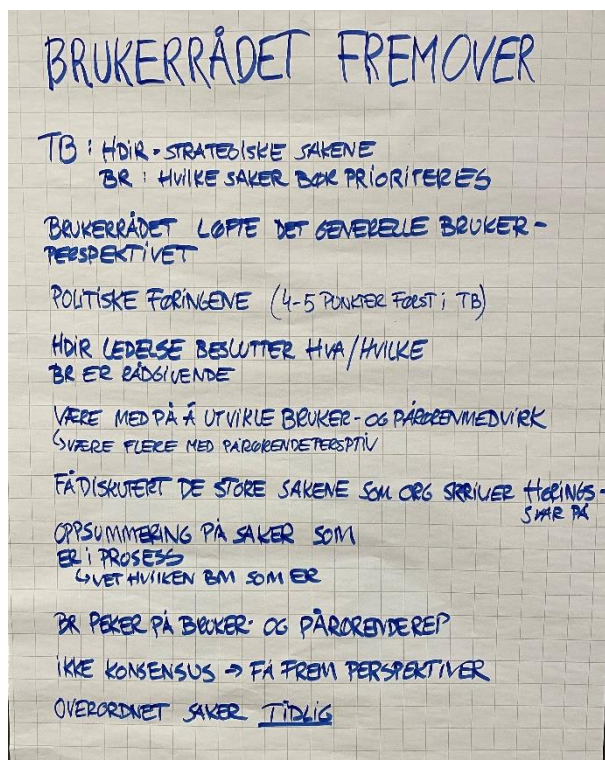 BRUKERRÅDET FREMOVER
TB : HDIR - STRATEGISKE SAKENE
BR : HVILKE SAKER BØR PRIORITERES
BRUKERRÅDET LØFTE DET GENERELLE BRUKER-
PERSPEKTIVET
POLITISKE FØRINGENE (4-5 PUNKTER FØRST i TB)
HDIR LEDELSE BESLUTTER HVA/HVILKE
BR ER RÅDGIVENDE
VÆRE MED PÅ Å UTVIKLE BRUKER- OG PÅRØRENMEDVIRK
↳ VÆRE FLERE MED PÅRØRENDEPERSPTIV
FÅ DISKUTERT DE STORE SAKENE SOM ORG SKRIVER HØRINGS-
SVAR PÅ
OPPSUMMERING PÅ SAKER SOM
ER i PROSESS
↳ VET HVILKEN BM SOM ER
BR PEKER PÅ BRUKER- OG PÅRØRENDEREP
iKKE KONSENSUS → FÅ FREM PERSPEKTIVER
OVERORDNET SAKER TIDLIG